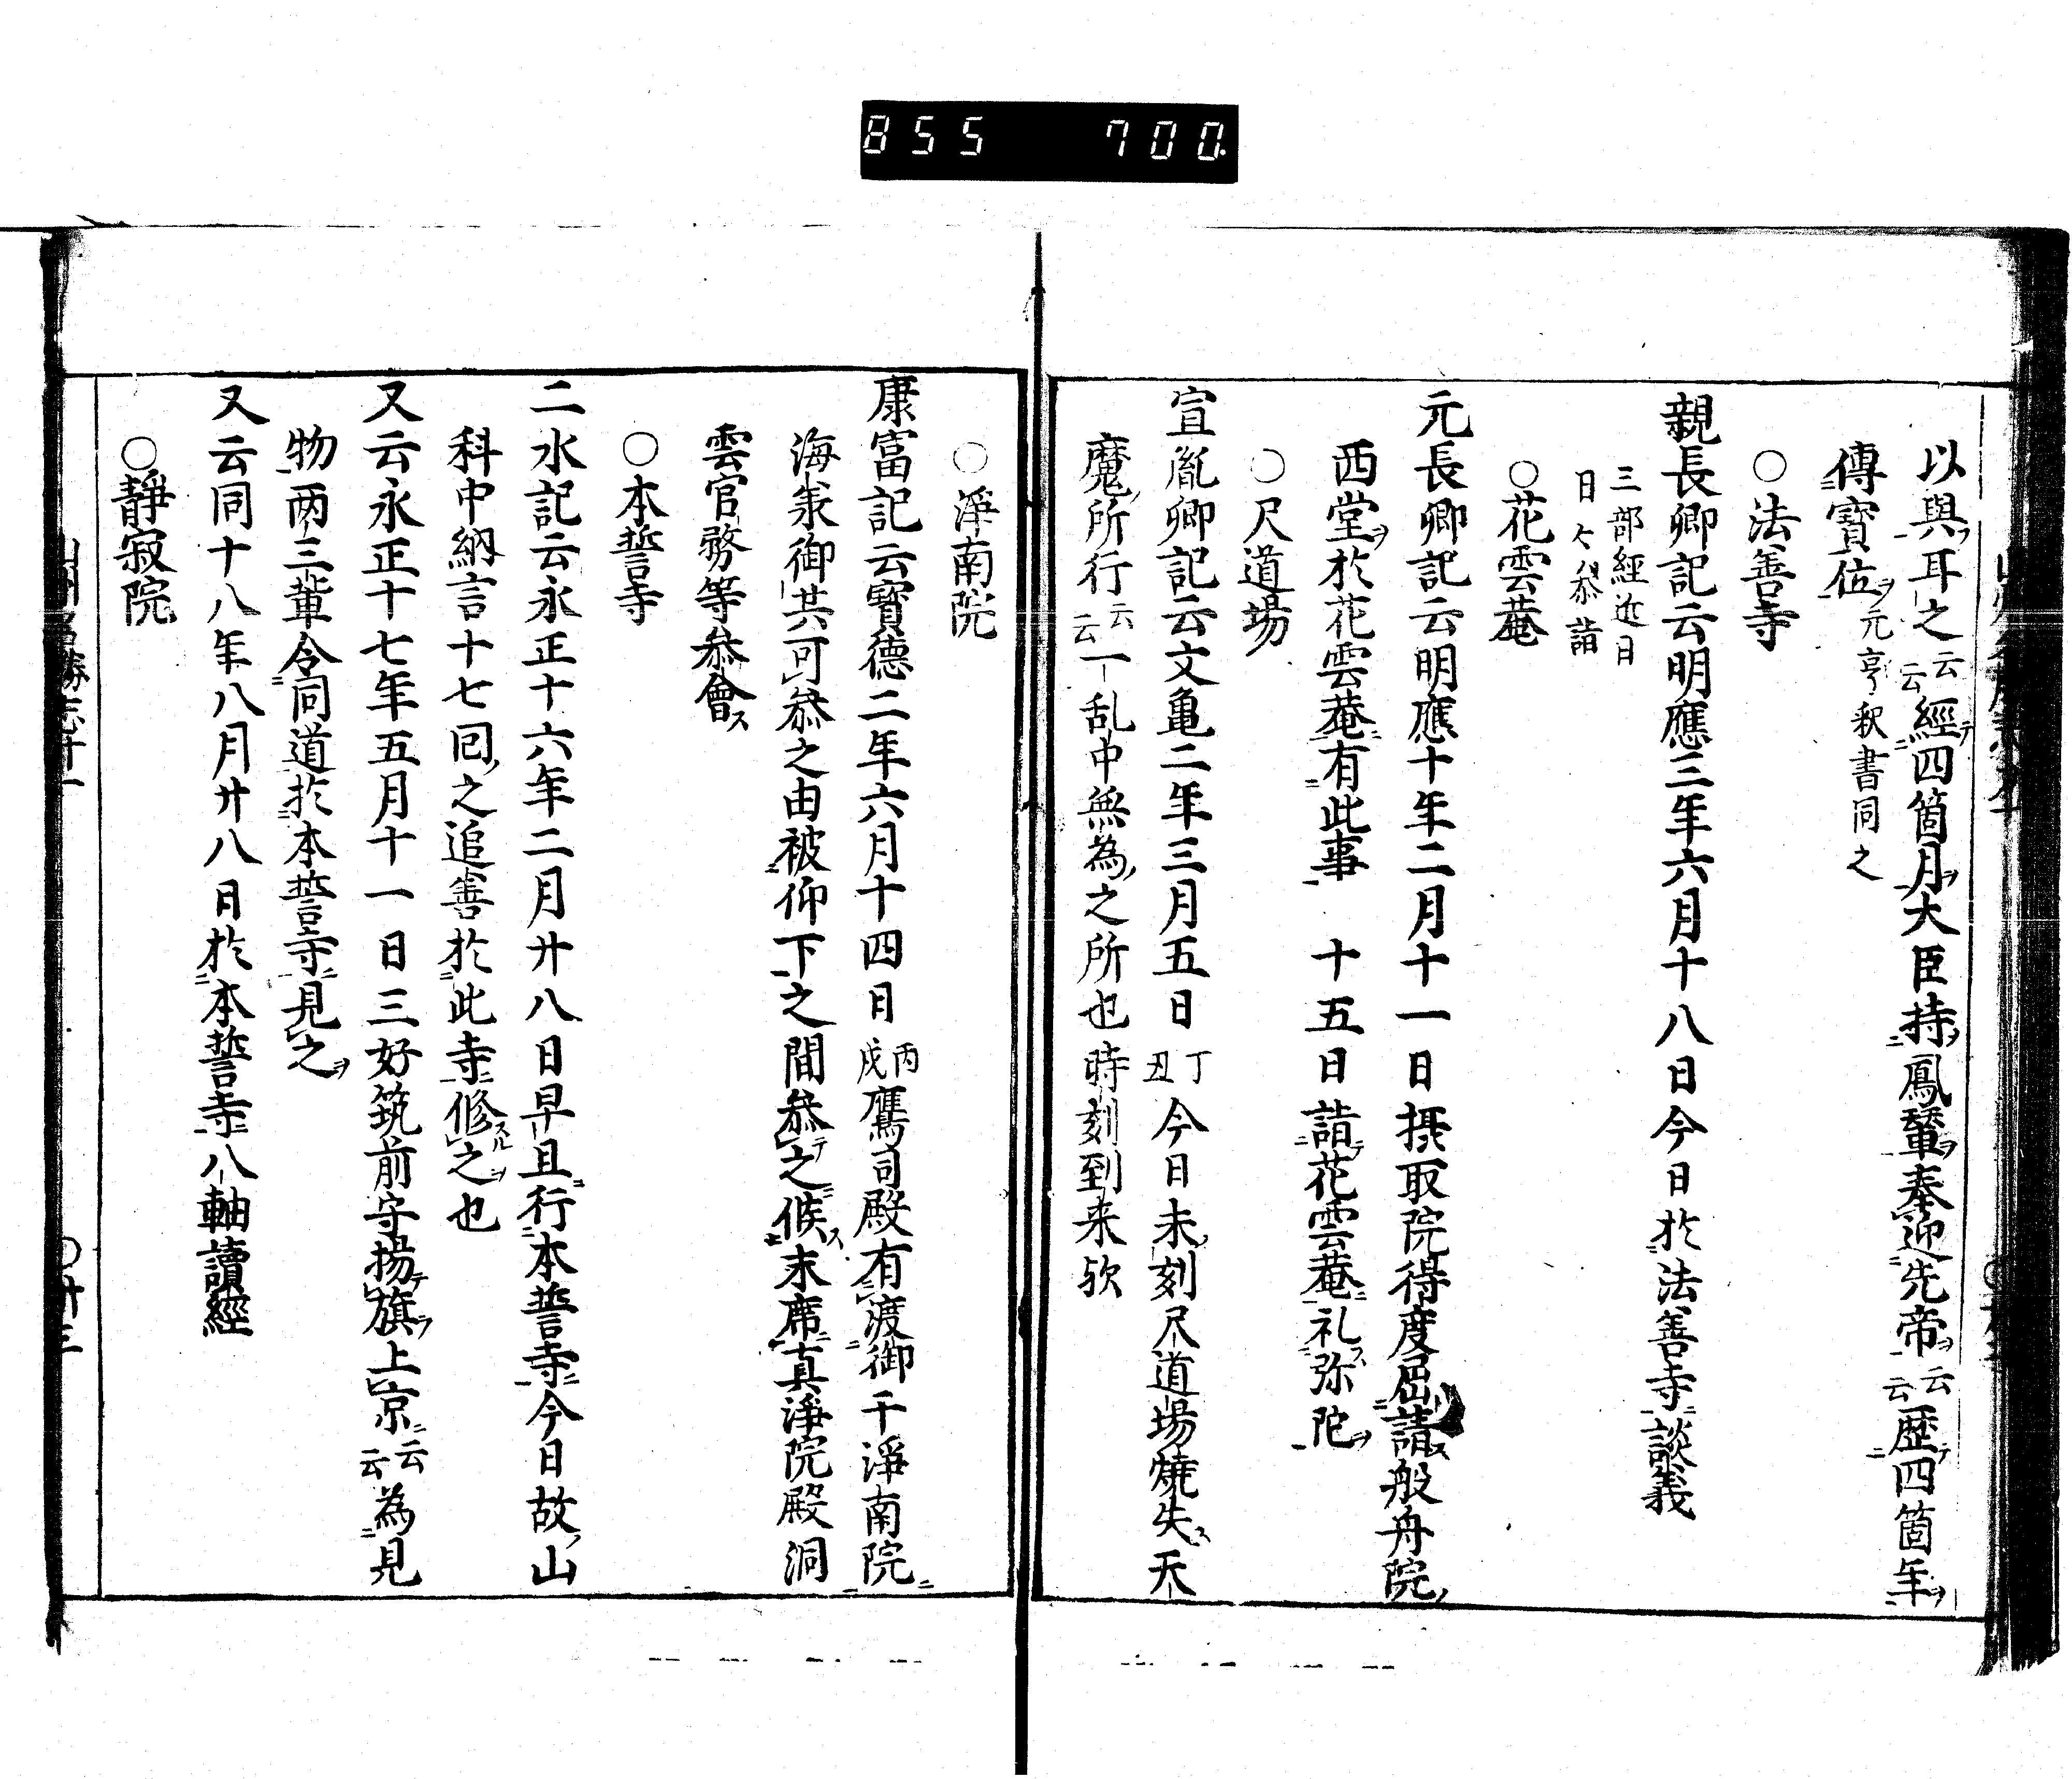 855 700.
以與耳之云云經四箇月大臣持鳳輦奉迎先帝云云歴四箇年
傳寶位元亨釈書同之
○法善寺
親長卿記云明應三年六月十八日今日於法善寺談義
三部經近日
日々參詣
○花雲菴
元長卿記云明應十年二月十一日摂取院得度屈請般舟院
西堂於花雲菴有此事 十五日詣花雲菴礼弥陀
○尺道場
宣胤卿記云文亀二年三月五日丁丑今日未刻尺道場燒失天
魔所行云云一乱中無為之所也時刻到来欤
○淨南院
康富記云寶德二年六月十四日丙戌鷹司殿有渡御干淨南院
海来御共可參之由被仰下之間參之候末席真淨院殿洞
雲官務等參會ス
○本誓寺
二水記云永正十六年二月廿八日早旦行本誓寺今日故山
科中納言十七回之追善於此寺修之也
又云永正十七年五月十一日三好筑前守揚旗上京云云為見
物両三輩令同道於本誓寺見之
又云同十八年八月廿八日於本誓寺八軸讀經
○靜寂院
山州名勝志十一
○廿三